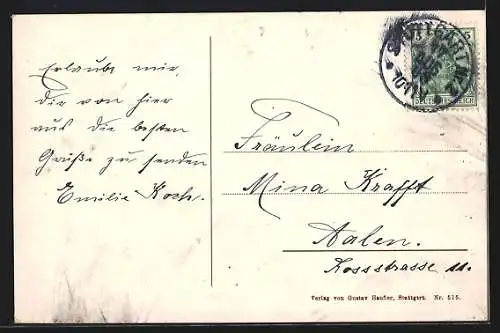 Erlaubt mir,
Dir von hier
aus die besten
Grüße zu senden
Emilie Koch.
STUTTGART
5
DEUTSCHES REICH
Fräulein
Mina Krafft
Aalen.
Rossstrasse 11.
Verlag von Gustav Stuttgart. Nr. 515.